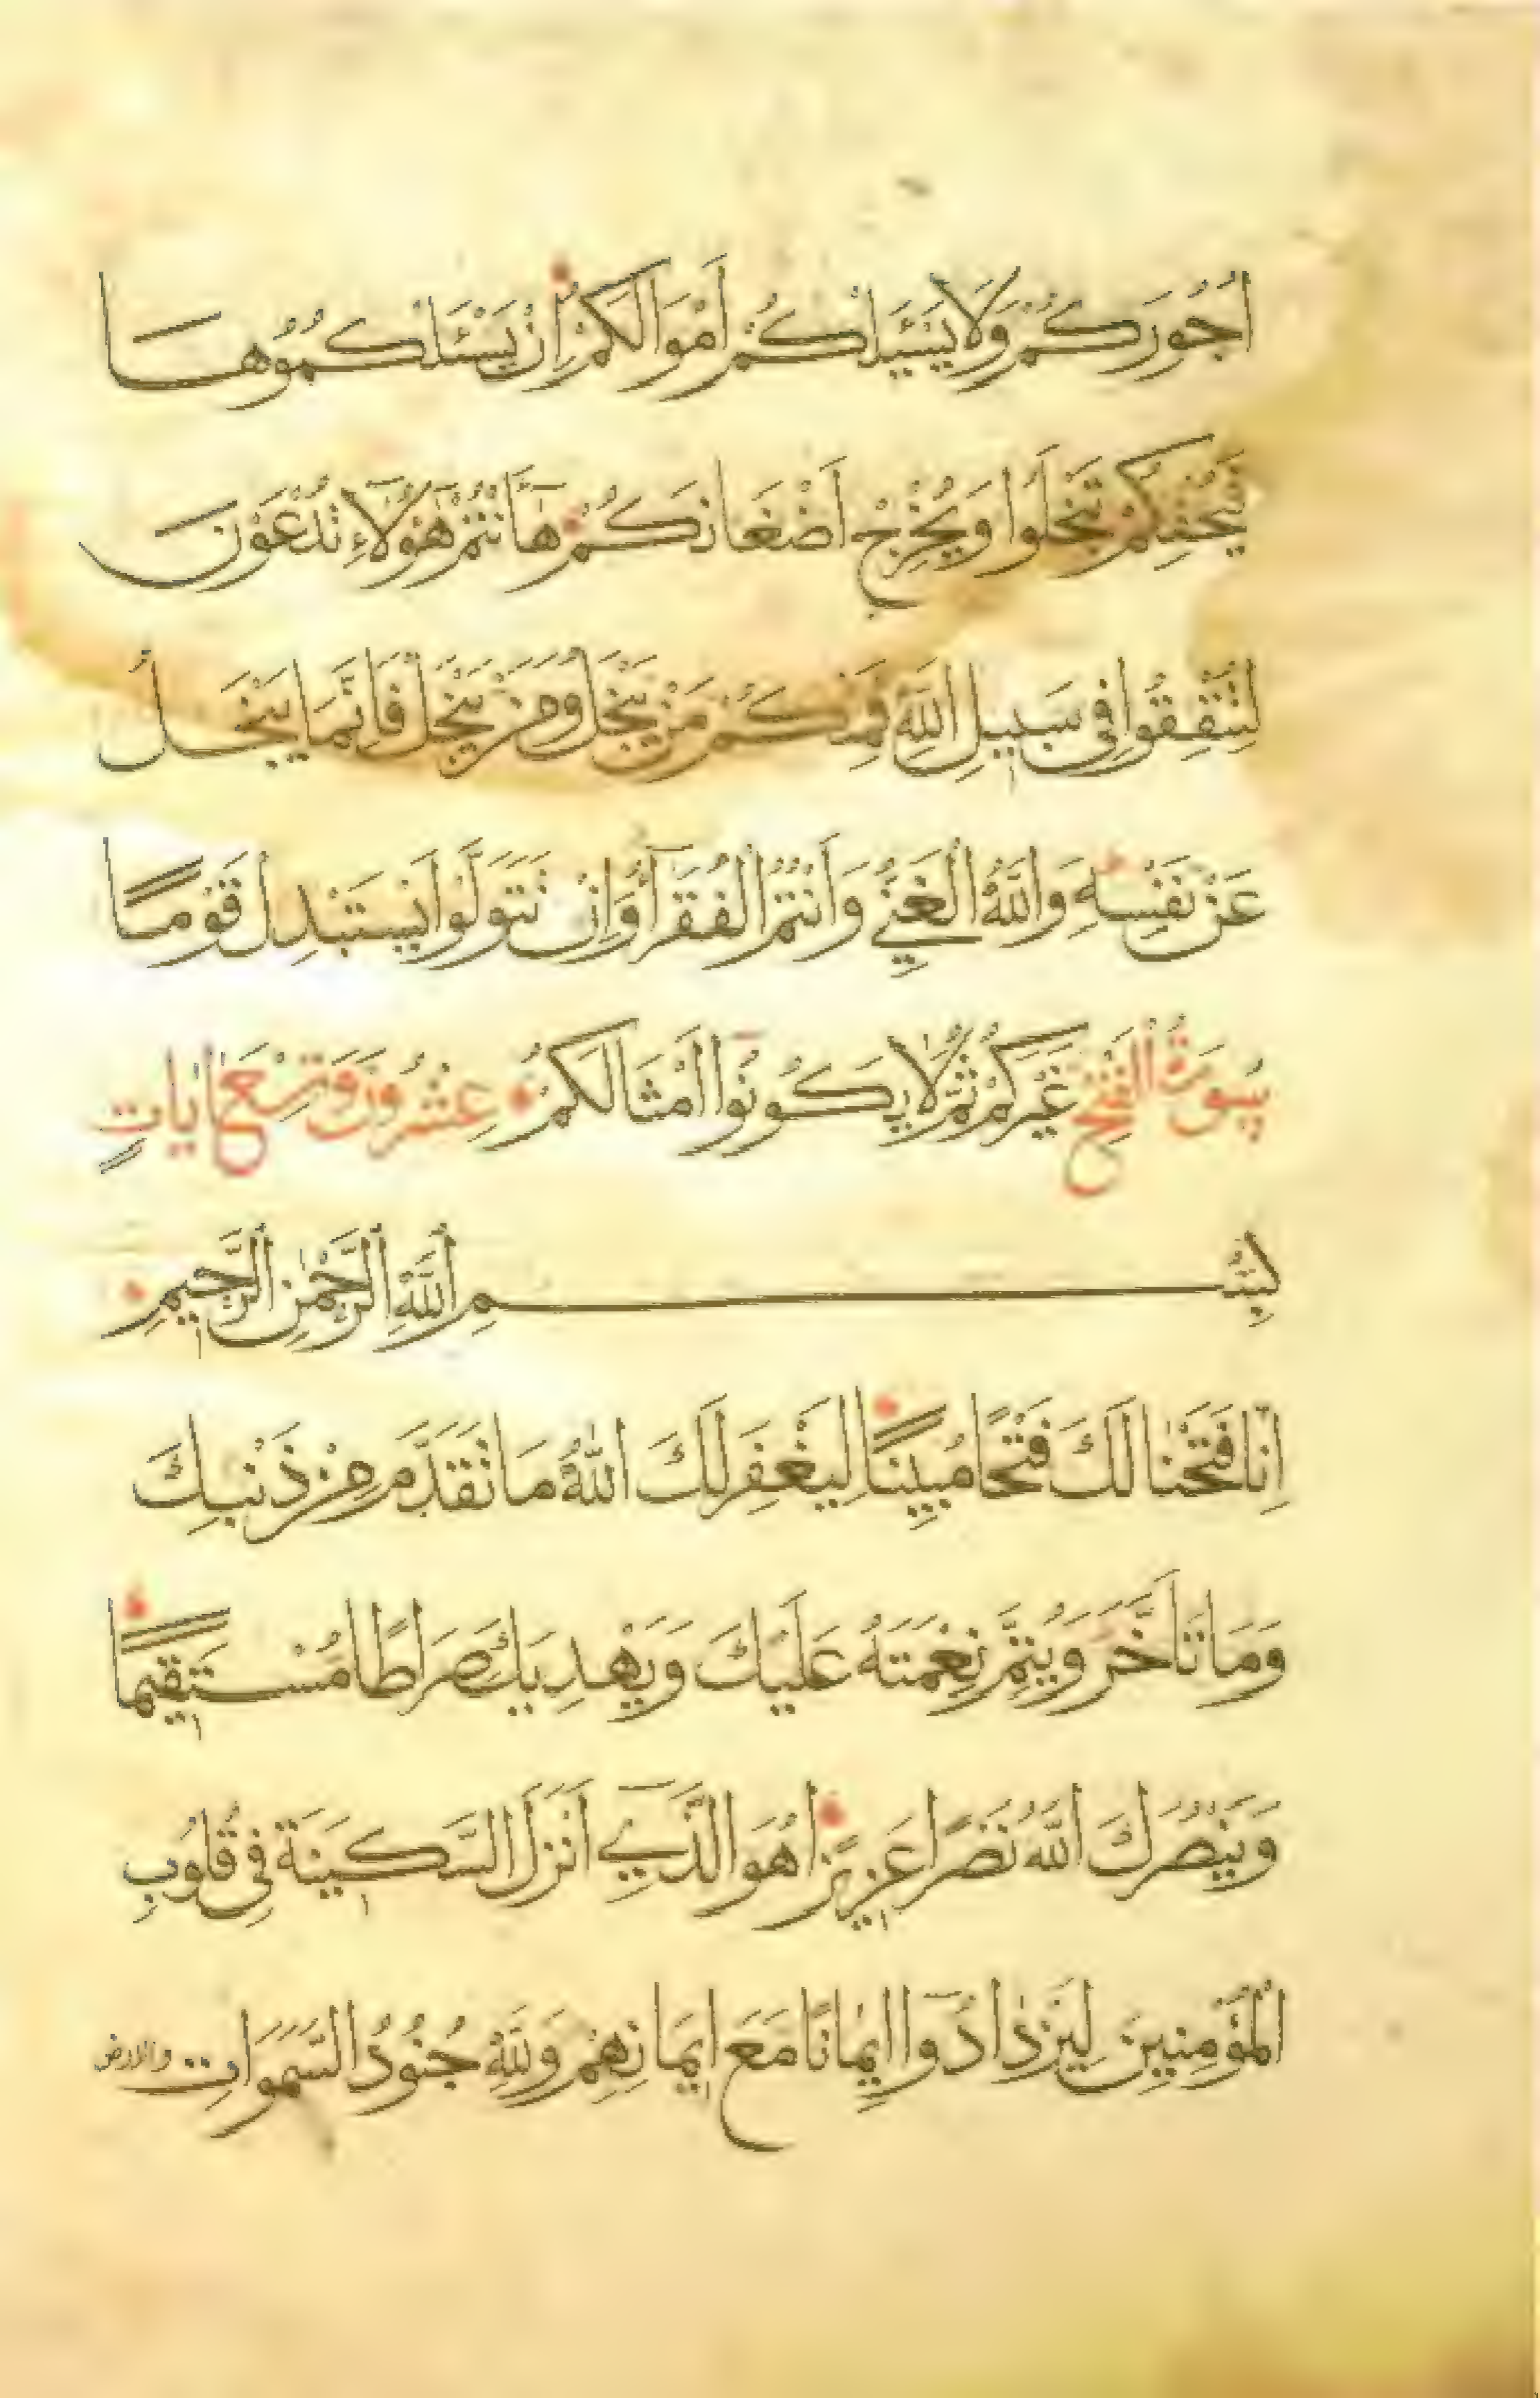 اُجُورَكُمْ وَلَا يَسْـَٔلْكُمْ اَمْوَالَكُمْ اِنْ يَسْـَٔلْكُمُوهَا
فَيُحْفِكُمْ تَبْخَلُوا وَيُخْرِجْ اَضْغَانَكُمْ هَٓا اَنْتُمْ هٰٓؤُلَاءِ تُدْعَوْنَ
لِتُنْفِقُوا فِى سَبِيلِ اللّٰهِ فَمِنْكُمْ مَنْ يَبْخَلُ وَمَنْ يَبْخَلْ فَاِنَّمَا يَبْخَلُ
عَنْ نَفْسِهِ وَاللّٰهُ الْغَنِيُّ وَاَنْتُمُ الْفُقَرَٓاءُ وَاِنْ تَتَوَلَّوْا يَسْتَبْدِلْ قَوْمًا
سُورَةُ الْفَتْحِ غَيْرَكُمْ ثُمَّ لَا يَكُونُٓوا اَمْثَالَكُمْ عِشْرُونَ وَتِسْعُ اٰيَاتٍ
بِسْمِ اللّٰهِ الرَّحْمٰنِ الرَّحِيمِ
اِنَّا فَتَحْنَا لَكَ فَتْحًا مُبِينًا لِيَغْفِرَ لَكَ اللّٰهُ مَا تَقَدَّمَ مِنْ ذَنْبِكَ
وَمَا تَاَخَّرَ وَيُتِمَّ نِعْمَتَهُ عَلَيْكَ وَيَهْدِيَكَ صِرَاطًا مُسْتَقِيمًا
وَيَنْصُرَكَ اللّٰهُ نَصْرًا عَزِيزًا هُوَ الَّذِٓي اَنْزَلَ السَّكِينَةَ فِى قُلُوبِ
الْمُؤْمِنِينَ لِيَزْدَادُٓوا اِيمَانًا مَعَ اِيمَانِهِمْ وَلِلّٰهِ جُنُودُ السَّمٰوَاتِ والارض